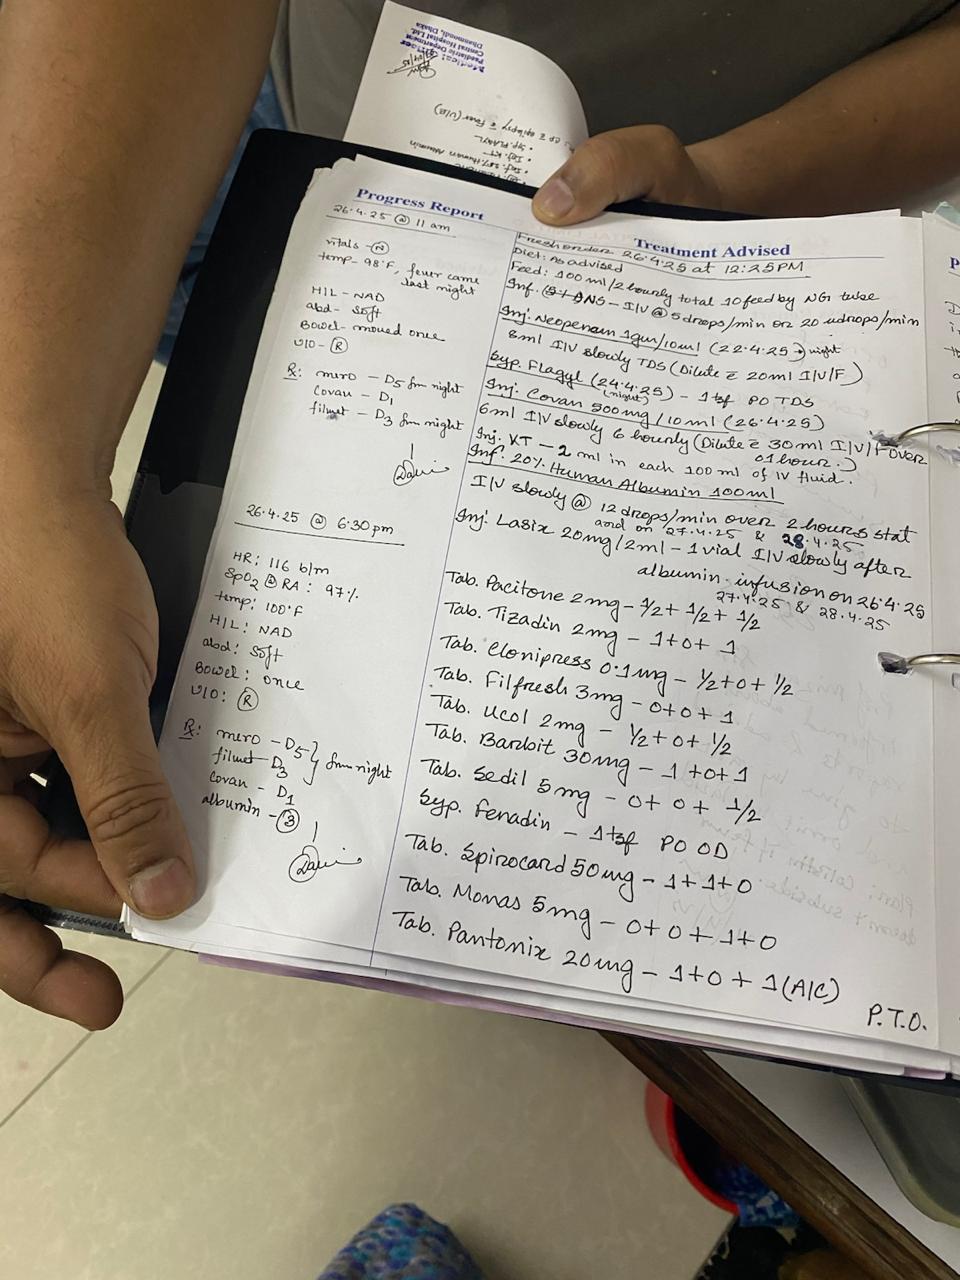 Medical Officer
Paediatric Department
Central Hospital Ltd.
Dhanmondi, Dhaka
CP c̄ epilepsy c̄ Fever (U/E)
Progress Report
26.4.25 @ 11 am
vitals - N
temp - 98°F, fever came
last night
H/L - NAD
abd - Soft
Bowel - moved once
U/O - R
Rx: mero - D5 from night
Covan - D1
filmet - D3 from night
26.4.25 @ 6:30 pm
HR: 116 b/m
SpO2 @ RA: 97%
temp: 100°F
H/L: NAD
abd: Soft
Bowel: once
U/O: R
Rx: mero - D5
filmet - D3 } from night
covan - D1
albumin - 3
Treatment Advised
Fresh order 26.4.25 at 12:25 PM
Diet: As advised
Feed: 100 ml/2 hourly total 10 feed by NG tube
Inf. NS - I/V @ 5 drops/min or 20 udrops/min
Inj. Neopenem 1gm/10ml (22.4.25) night
8ml I/V slowly TDS (Dilute c̄ 20ml I/V/F)
Syp. Flagyl (24.4.25) - 1 tsf PO TDS
(night)
Inj. Covan 500mg/10ml (26.4.25)
6ml I/V slowly 6 hourly (Dilute c̄ 30ml I/V/F over
01 hour.)
Inj. KT - 2 ml in each 100 ml of IV fluid.
Inf. 20% Human Albumin 100ml
I/V slowly @ 12 drops/min over 2 hours stat
and on 27.4.25 & 28.4.25
Inj. Lasix 20mg/2ml - 1 vial I/V slowly after
albumin infusion on 26.4.25
27.4.25 & 28.4.25
Tab. Pacitone 2mg - 1/2 + 1/2 + 1/2
Tab. Tizadin 2mg - 1+0+1
Tab. Clonipress 0.1mg - 1/2+0+1/2
Tab. Filfresh 3mg - 0+0+1
Tab. Ucol 2mg - 1/2+0+1/2
Tab. Barbit 30mg - 1+0+1
Tab. Sedil 5mg - 0+0+1/2
Syp. Fenadin - 1 tsf PO OD
Tab. Spirocard 50mg - 1+1+0
Tab. Monas 5mg - 0+0+1+0
Tab. Pantonix 20mg - 1+0+1 (A/C)
P.T.O.